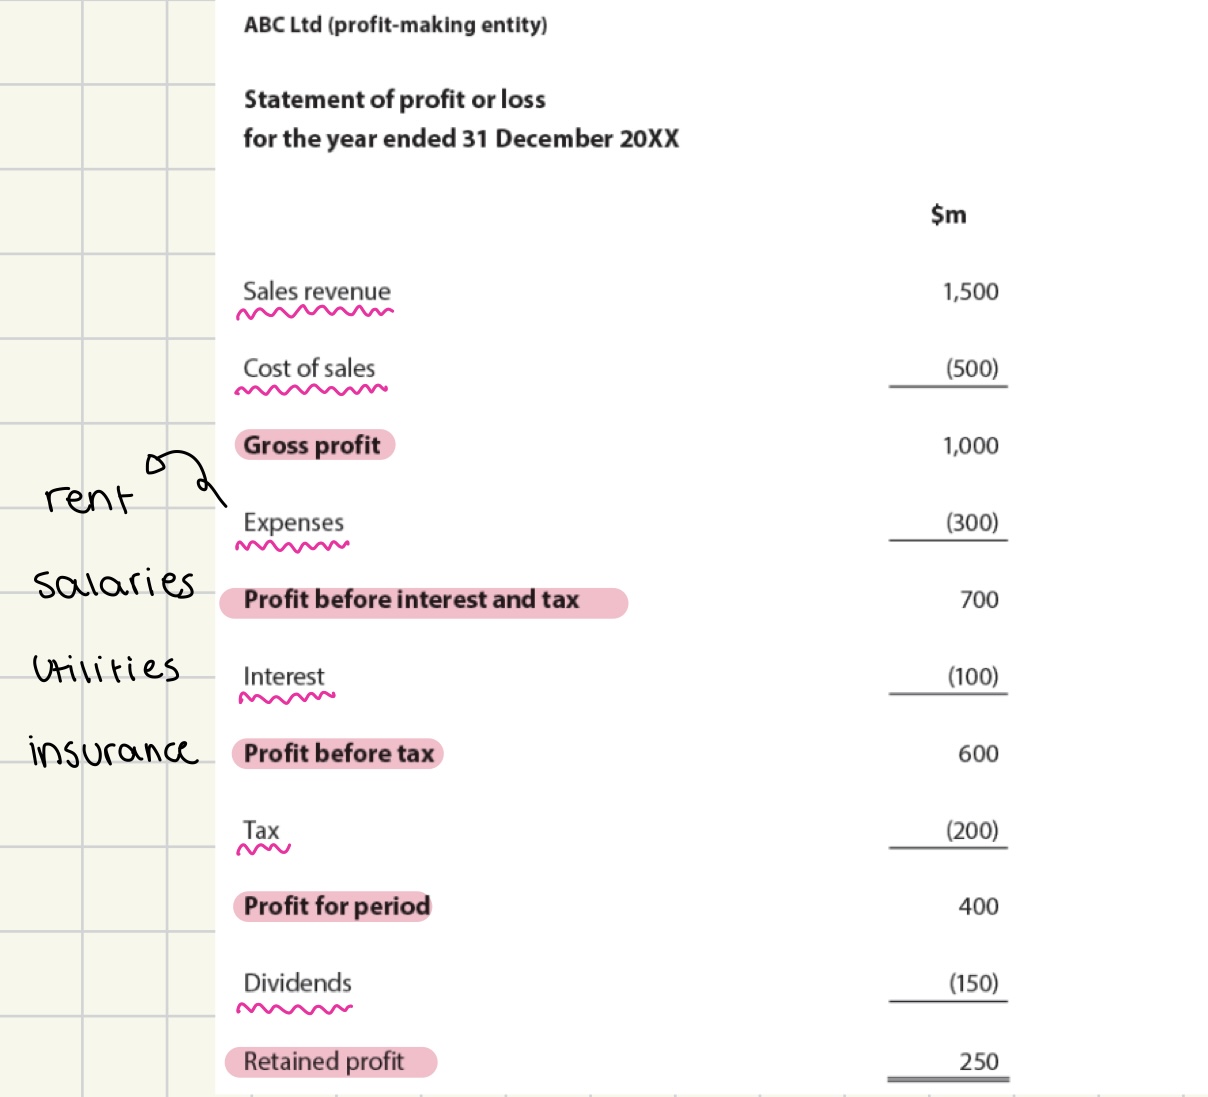 ABC Ltd (profit-making entity)
Statement of profit or loss
for the year ended 31 December 20XX
$m
Sales revenue 1,500
Cost of sales (500)
Gross profit 1,000
rent
Expenses (300)
salaries
Profit before interest and tax 700
utilities
Interest (100)
insurance
Profit before tax 600
Tax (200)
Profit for period 400
Dividends (150)
Retained profit 250